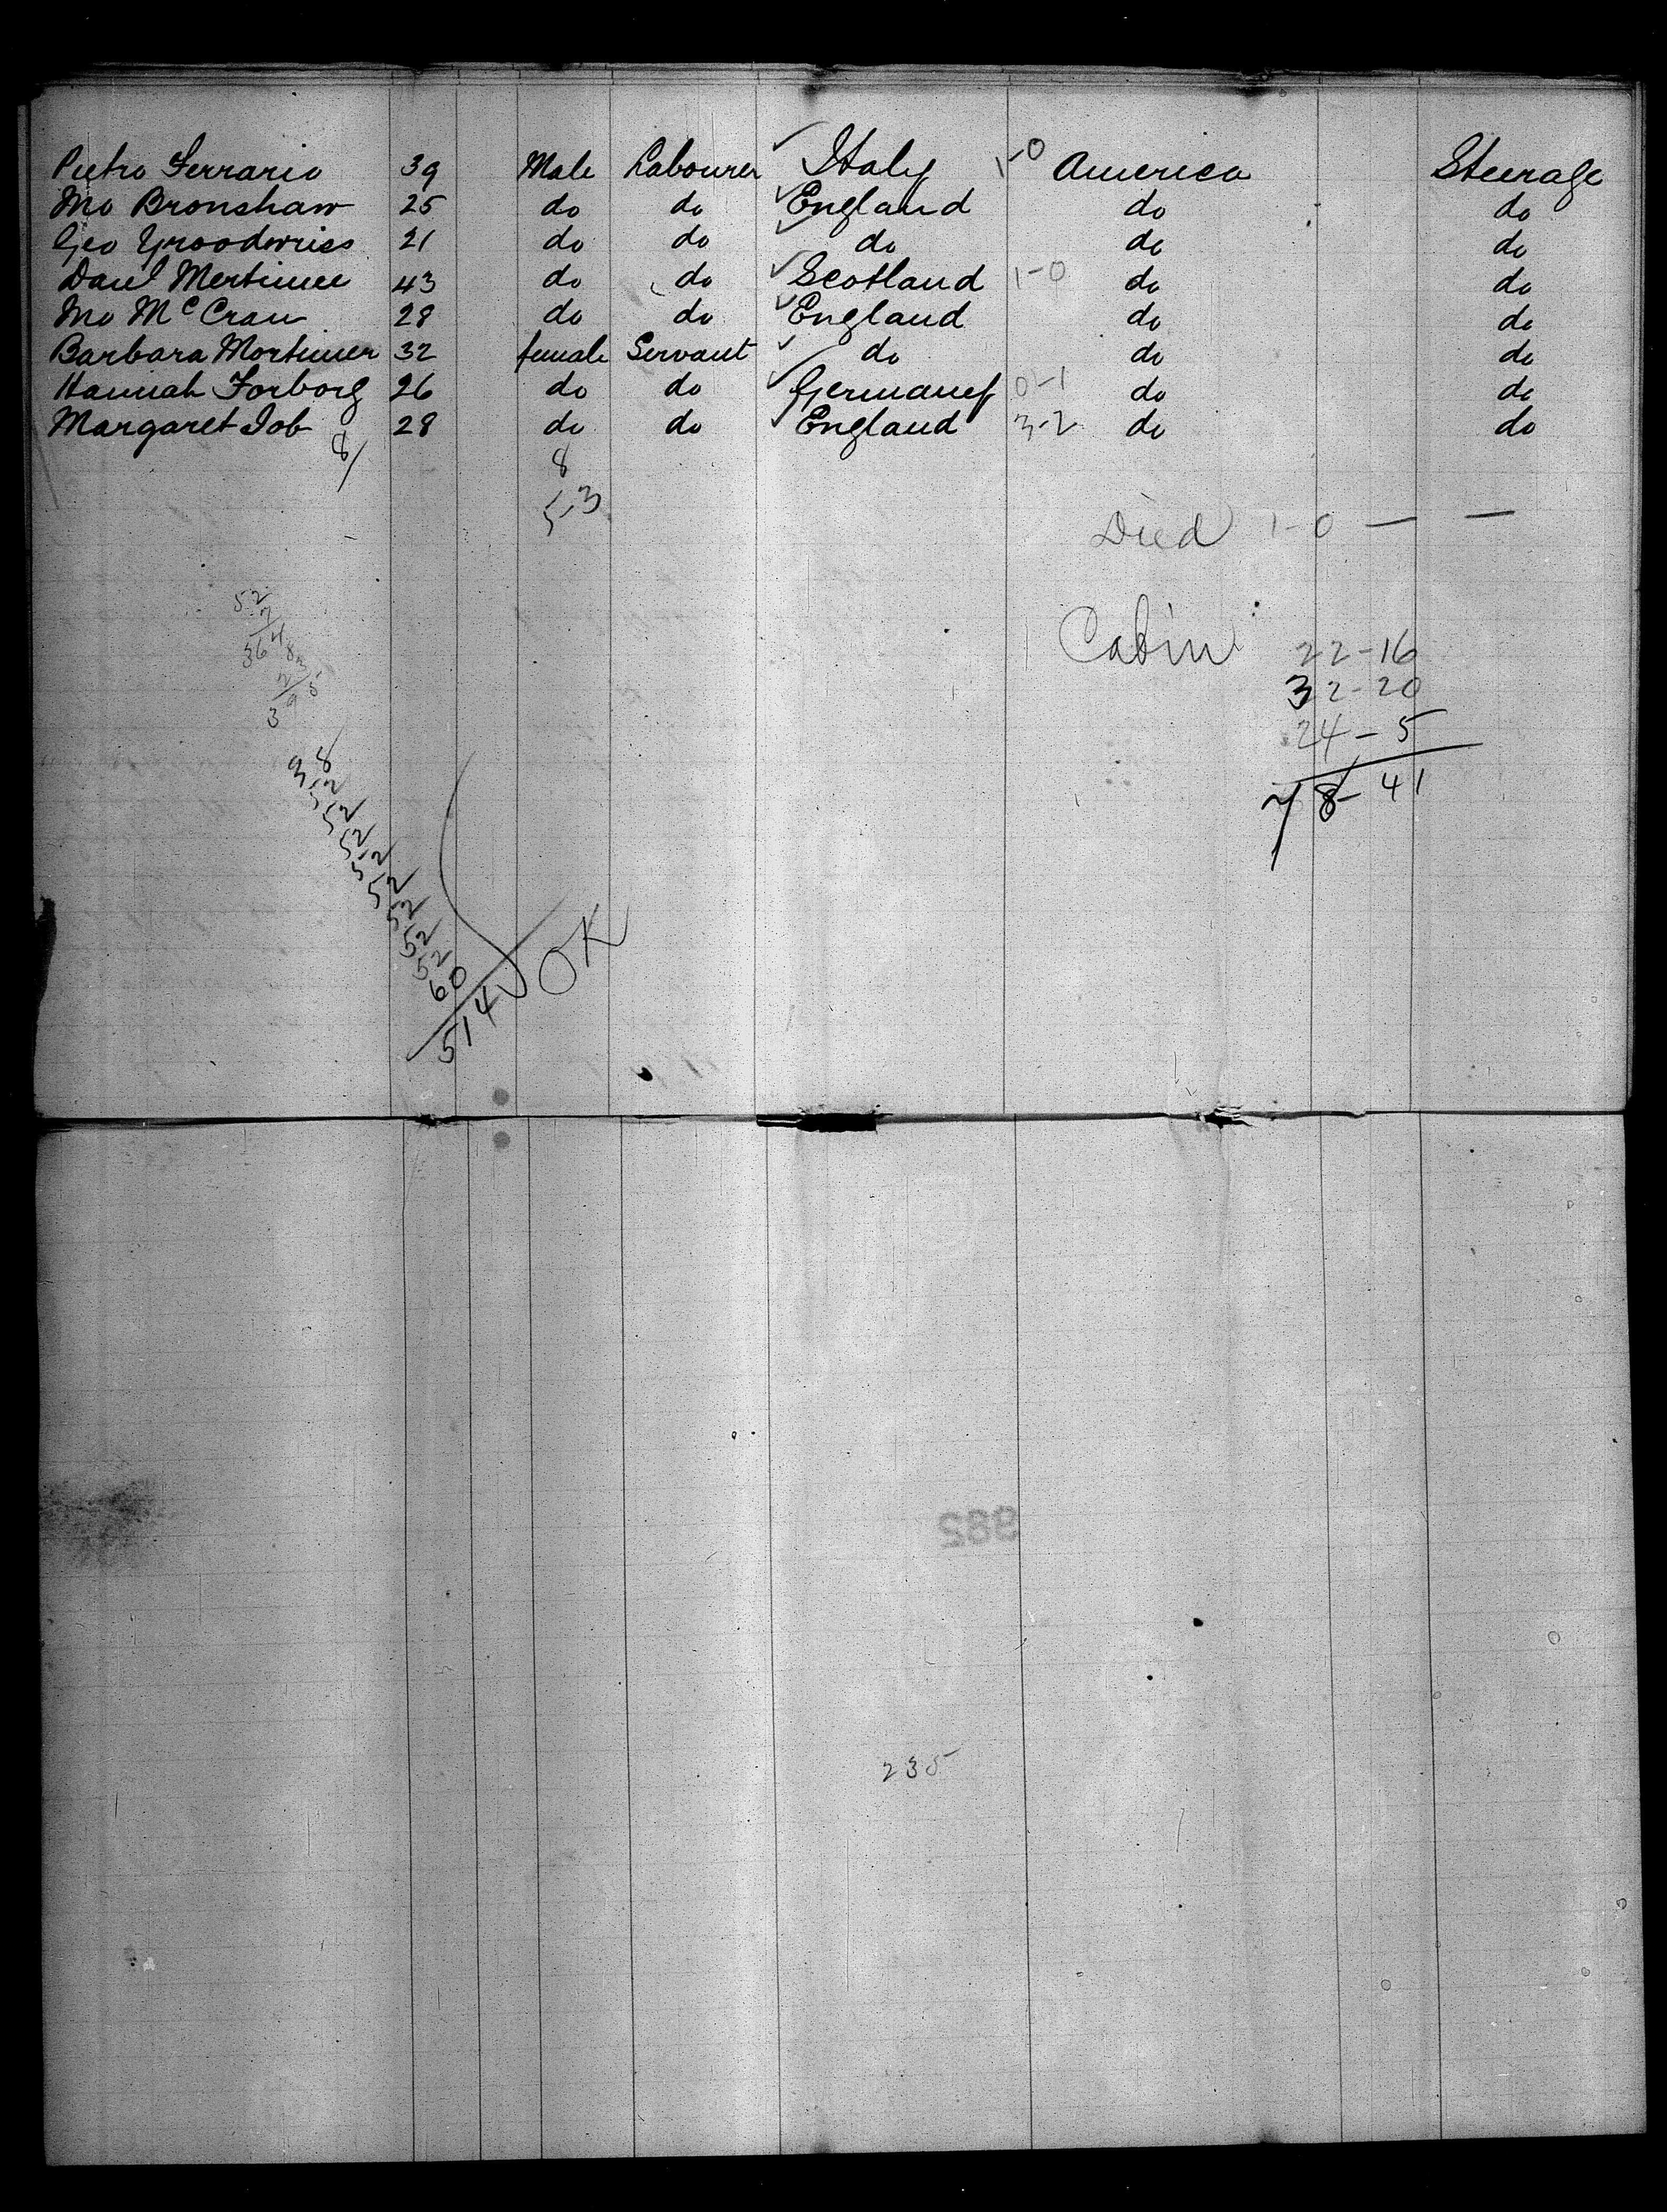 Pietro Ferrario 39 Male Labourer Italy 1-0 America Steerage
Jno Bronshaw 25 do do England do do
Geo 21 do do do do do
Danl Mortimer 43 do do Scotland 1-0 do do
Jno McCrau 28 do do England do do
Barbara Mortimer 32 female Servant do do do
Hannah Forborg 26 do do Germany 0-1 do do
Margaret Job 28 do do England 3-2 do do
8 8
5-3
Died 1-0 — —
Cabin 22-16
32-20
24-5
78-41
52
7
364
98
52
52
52
52
52
52
52
52
60
514 OK
982
235